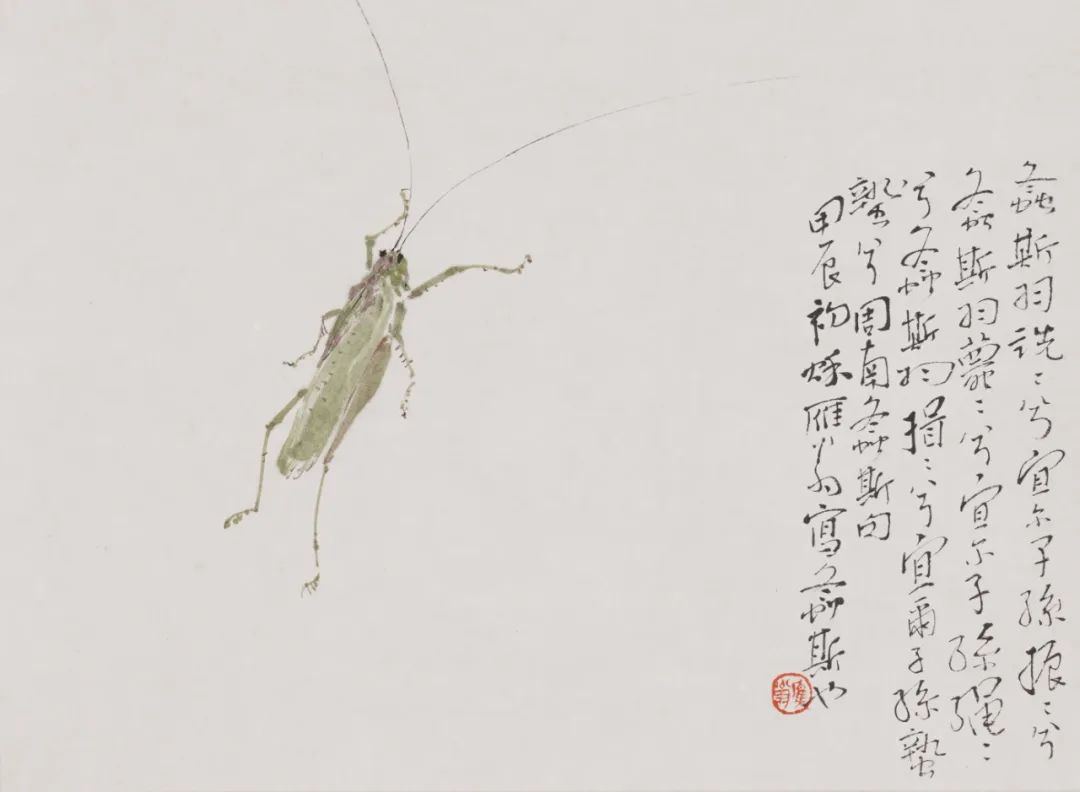 螽斯羽詵〻兮宜尔子孫振〻兮
螽斯羽薨〻兮宜尔子孫繩〻
兮螽斯羽揖〻兮宜爾子孫蟄
蟄兮周南螽斯句
甲辰初秋雁翁寫螽斯也
雁翁